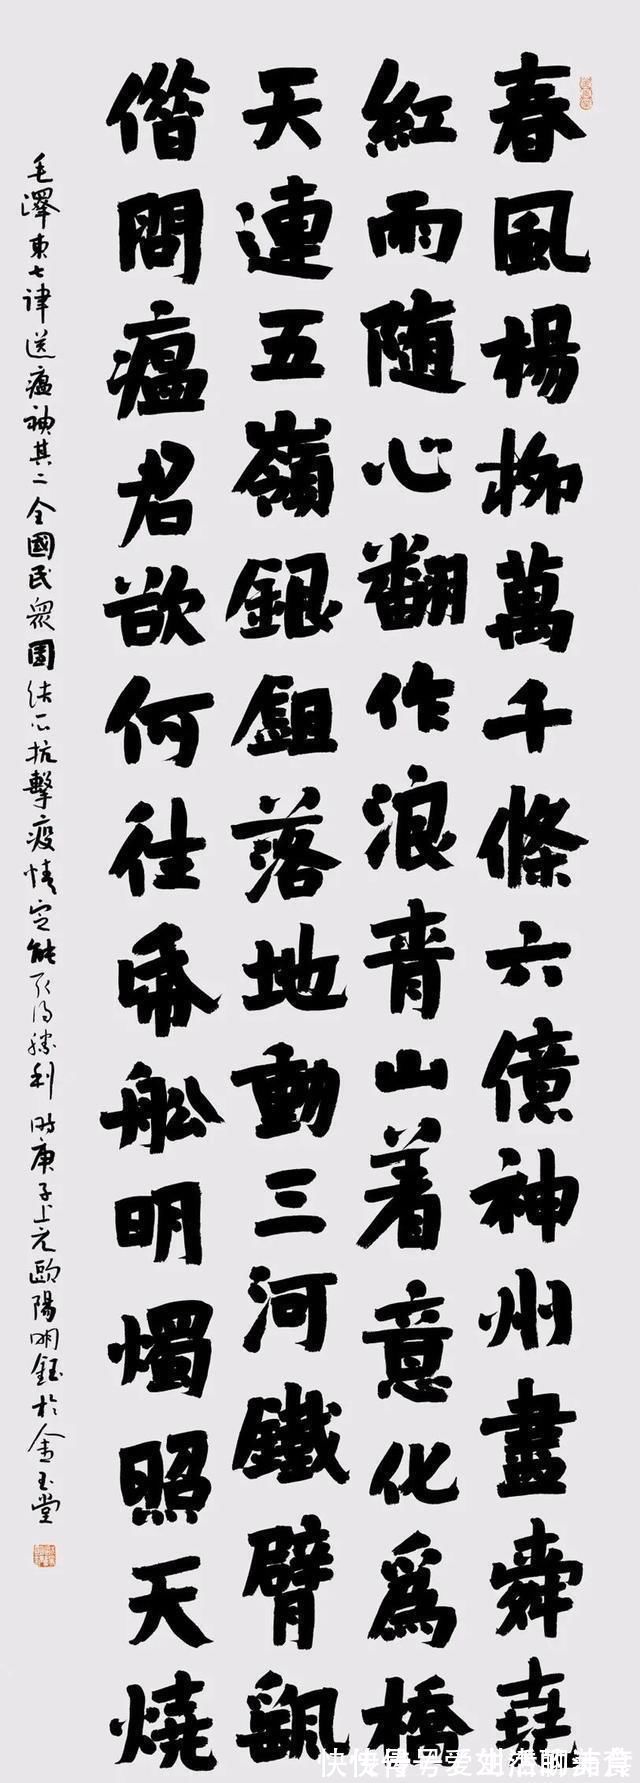 春風楊柳萬千條六億神州盡舜堯
紅雨随心翻作浪青山着意化為橋
天連五嶺銀鉏落地動三河鐵臂颻
借問瘟君欲何往帋舩明燭照天燒
毛澤東七律送瘟神其二全國民衆團结心抗擊疫情定能取得勝利 时庚子上元歐陽明鈺於金玉堂